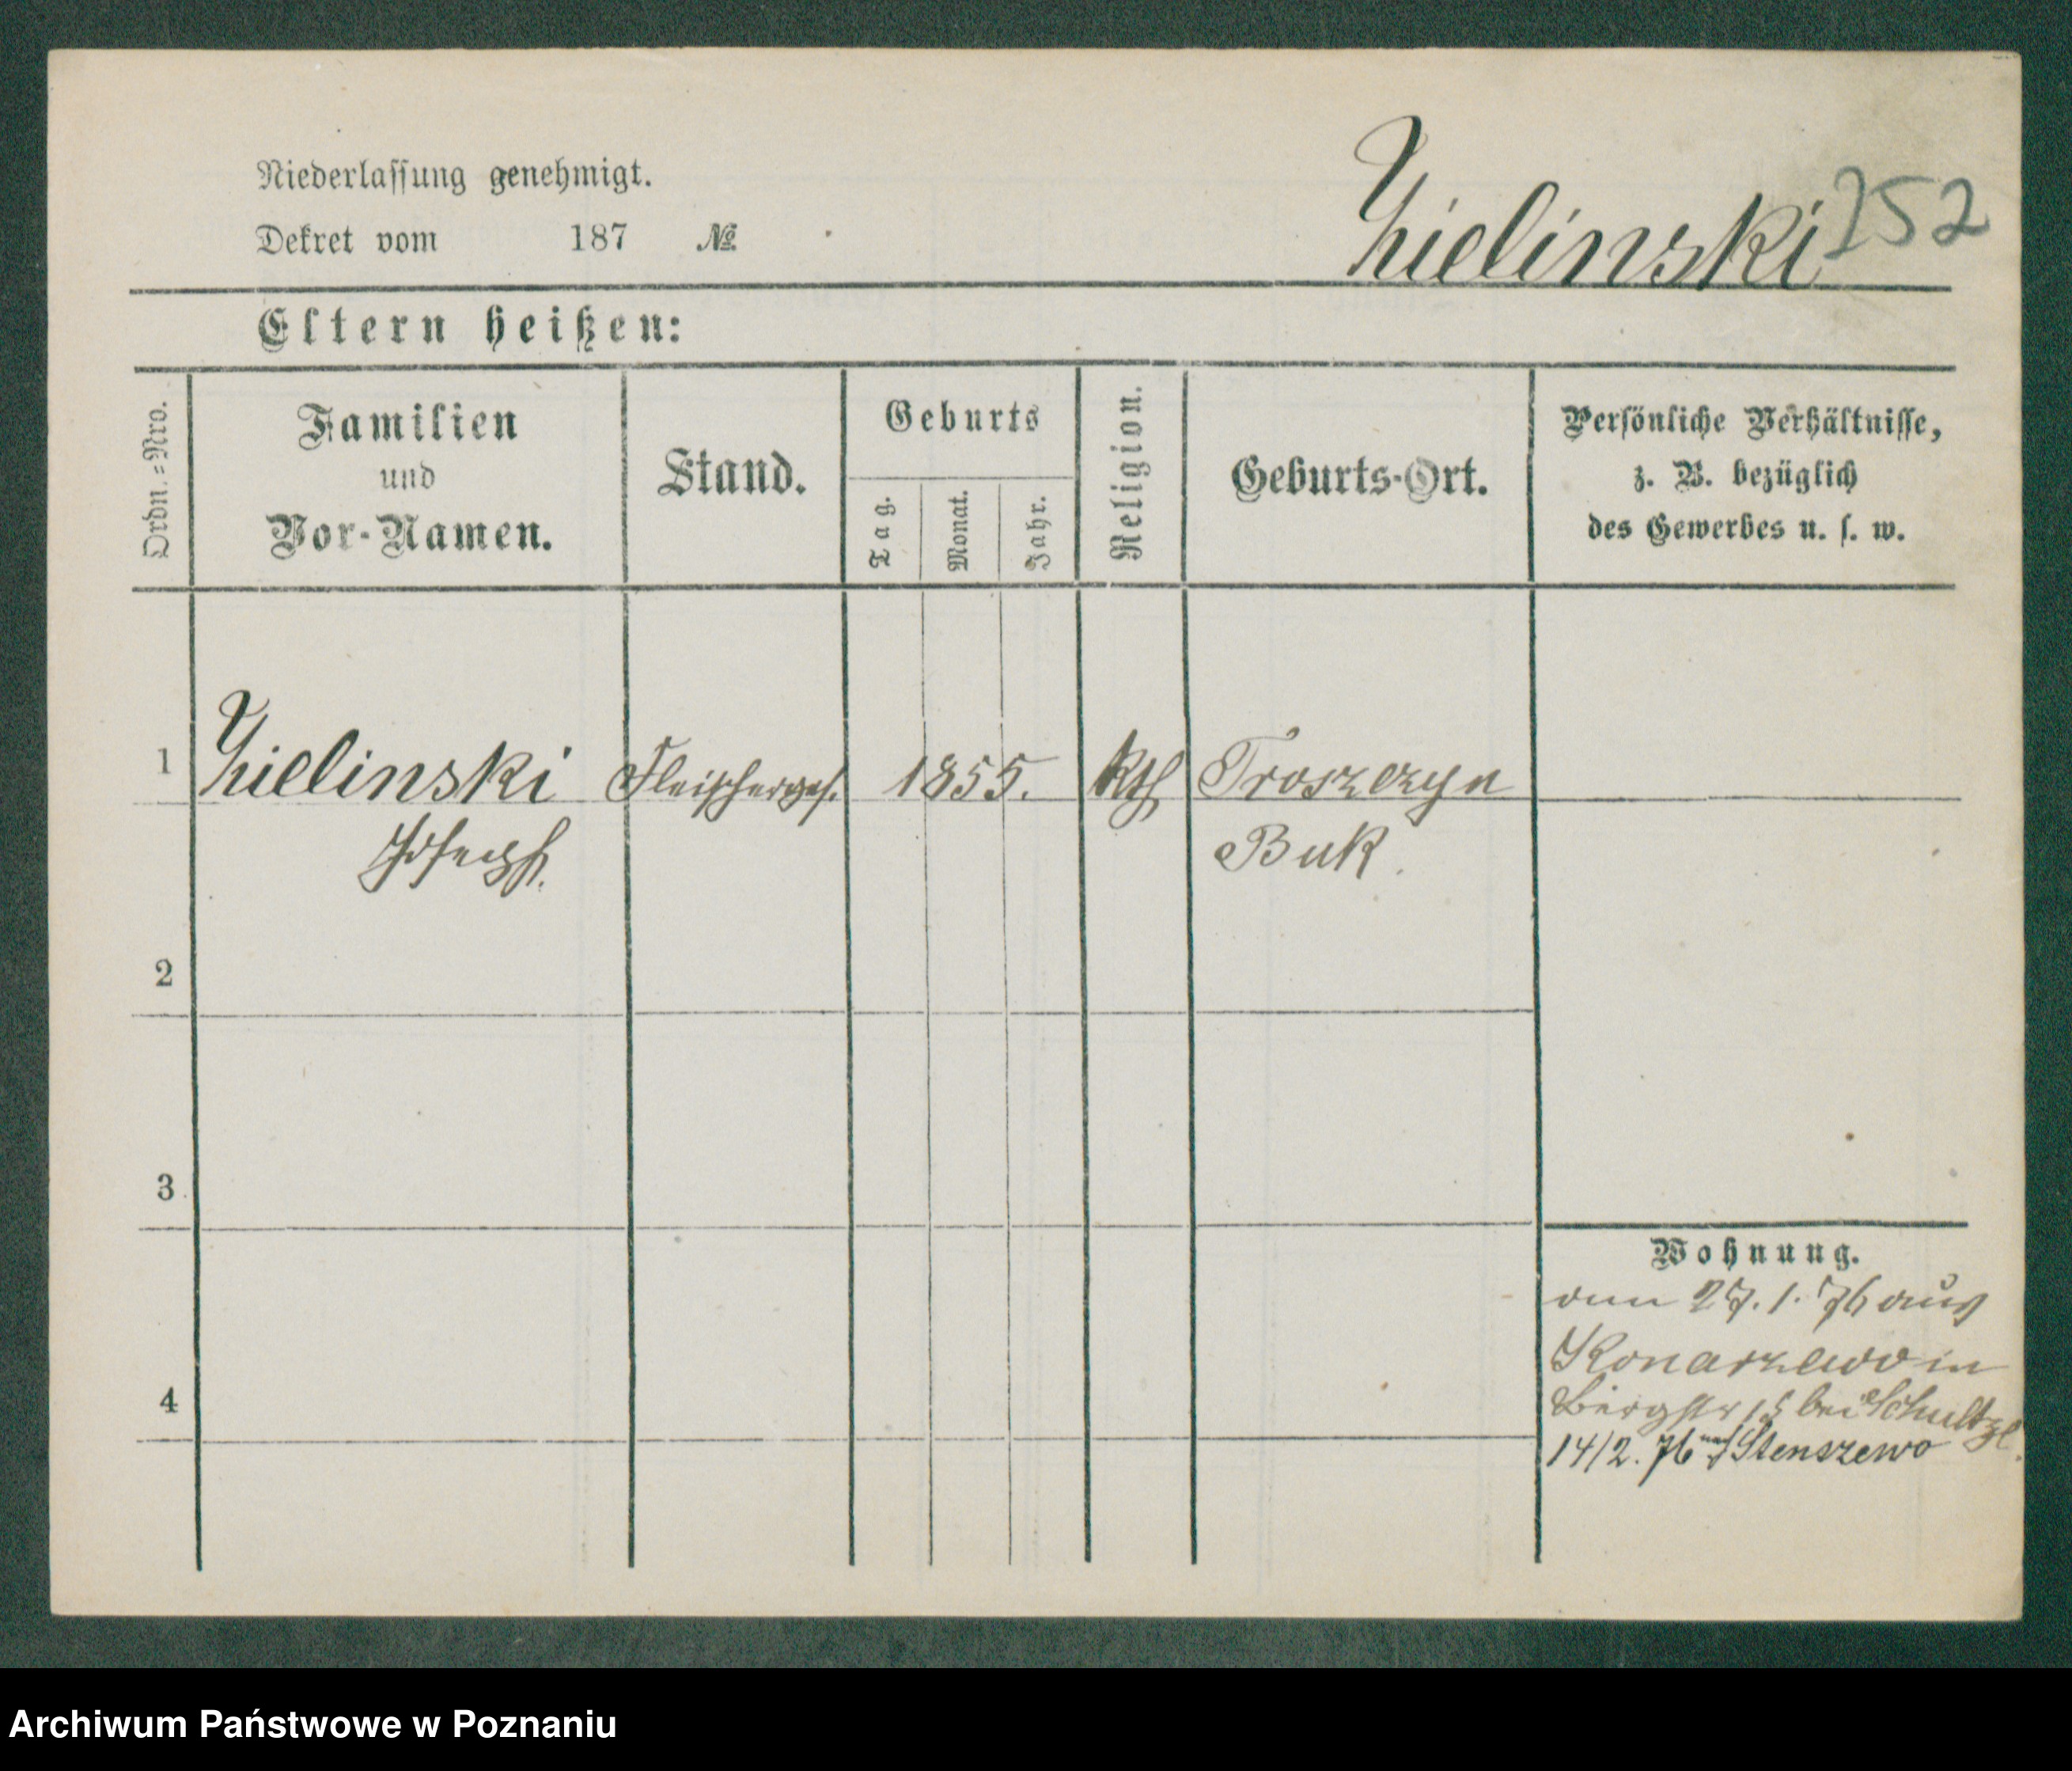 Niederlassung genehmigt.
Dekret vom 187 №
Zielinski 252
Eltern heißen:
Ordn.=Nro.
Familien
und
Vor-Namen.
Stand.
Geburts
Tag.
Monat.
Jahr.
Religion.
Geburts-Ort.
Persönliche Verhältnisse,
z. B. bezüglich
des Gewerbes u. s. w.
1 Zielinski Fleischerges. 1855. kth Troszczyn
Joseph. Buk.
2
3
4
Wohnung.
vom 27.1.76 aus
Konarzewo in
Bergstr 15 bei Schultz
14/2. 76 nach Stenszewo
Archiwum Państwowe w Poznaniu